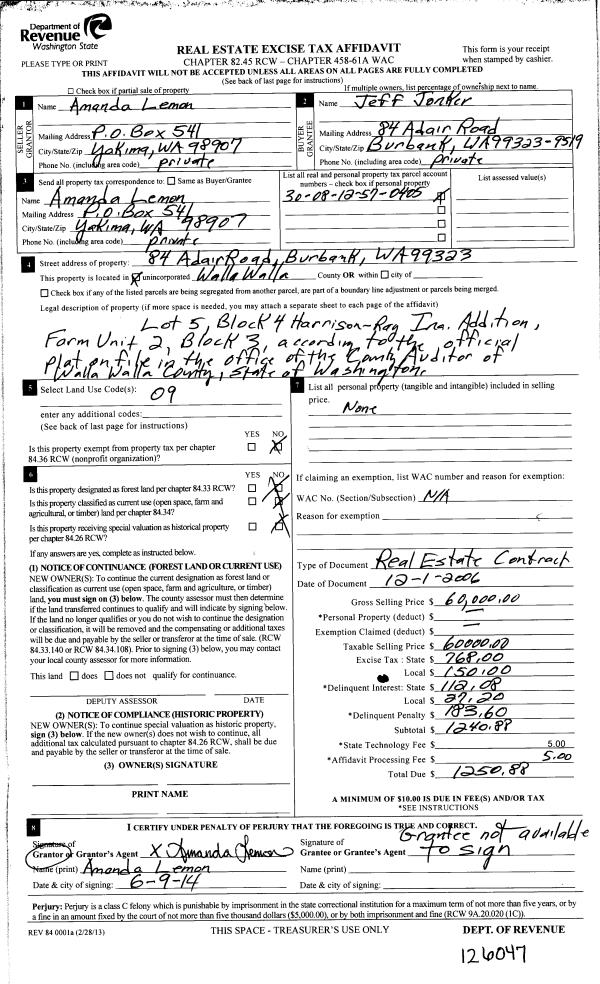 Department of
Revenue
Washington State
PLEASE TYPE OR PRINT
REAL ESTATE EXCISE TAX AFFIDAVIT
CHAPTER 82.45 RCW – CHAPTER 458-61A WAC
This form is your receipt
when stamped by cashier.
THIS AFFIDAVIT WILL NOT BE ACCEPTED UNLESS ALL AREAS ON ALL PAGES ARE FULLY COMPLETED
(See back of last page for instructions)
Check box if partial sale of property
If multiple owners, list percentage of ownership next to name.
1 Name Amanda Lemon
SELLER
GRANTOR
Mailing Address P.O. Box 541
City/State/Zip Yakima, WA 98907
Phone No. (including area code) private
2 Name Jeff Jonker
BUYER
GRANTEE
Mailing Address 84 Adair Road
City/State/Zip Burbank, WA 99323-9519
Phone No. (including area code) private
3 Send all property tax correspondence to: Same as Buyer/Grantee
Name Amanda Lemon
Mailing Address P.O. Box 541
City/State/Zip Yakima, WA 98907
Phone No. (including area code) private
List all real and personal property tax parcel account
numbers – check box if personal property
30-08-12-57-0405
List assessed value(s)
4 Street address of property: 84 Adair Road, Burbank, WA 99323
This property is located in X unincorporated Walla Walla County OR within city of
Check box if any of the listed parcels are being segregated from another parcel, are part of a boundary line adjustment or parcels being merged.
Legal description of property (if more space is needed, you may attach a separate sheet to each page of the affidavit)
Lot 5, Block 4 Harrison-Ray Addition,
Form Unit 2, Block 3, according to the official
Plat on file in the office of the County Auditor of
Walla Walla County, State of Washington.
5 Select Land Use Code(s):
09
enter any additional codes:
(See back of last page for instructions)
YES NO
Is this property exempt from property tax per chapter
84.36 RCW (nonprofit organization)? X
6 YES NO
Is this property designated as forest land per chapter 84.33 RCW? X
Is this property classified as current use (open space, farm and
agricultural, or timber) land per chapter 84.34? X
Is this property receiving special valuation as historical property
per chapter 84.26 RCW? X
If any answers are yes, complete as instructed below.
(1) NOTICE OF CONTINUANCE (FOREST LAND OR CURRENT USE)
NEW OWNER(S): To continue the current designation as forest land or
classification as current use (open space, farm and agriculture, or timber)
land, you must sign on (3) below. The county assessor must then determine
if the land transferred continues to qualify and will indicate by signing below.
If the land no longer qualifies or you do not wish to continue the designation
or classification, it will be removed and the compensating or additional taxes
will be due and payable by the seller or transferor at the time of sale. (RCW
84.33.140 or RCW 84.34.108). Prior to signing (3) below, you may contact
your local county assessor for more information.
This land does does not qualify for continuance.
DEPUTY ASSESSOR DATE
(2) NOTICE OF COMPLIANCE (HISTORIC PROPERTY)
NEW OWNER(S): To continue special valuation as historic property,
sign (3) below. If the new owner(s) does not wish to continue, all
additional tax calculated pursuant to chapter 84.26 RCW, shall be due
and payable by the seller or transferor at the time of sale.
(3) OWNER(S) SIGNATURE
PRINT NAME
7 List all personal property (tangible and intangible) included in selling
price.
None
If claiming an exemption, list WAC number and reason for exemption:
WAC No. (Section/Subsection) N/A
Reason for exemption
Type of Document Real Estate Contract
Date of Document 12-1-2006
Gross Selling Price $ 60,000.00
*Personal Property (deduct) $ —
Exemption Claimed (deduct) $ —
Taxable Selling Price $ 60000.00
Excise Tax : State $ 768.00
Local $ 150.00
*Delinquent Interest: State $ 112.08
Local $ 27.20
*Delinquent Penalty $ 183.60
Subtotal $ 1240.88
*State Technology Fee $ 5.00
*Affidavit Processing Fee $ 5.00
Total Due $ 1250.88
A MINIMUM OF $10.00 IS DUE IN FEE(S) AND/OR TAX
*SEE INSTRUCTIONS
8 I CERTIFY UNDER PENALTY OF PERJURY THAT THE FOREGOING IS TRUE AND CORRECT.
Signature of
Grantor or Grantor's Agent X Amanda Lemon
Name (print) Amanda Lemon
Date & city of signing: 6-9-14
Signature of
Grantee or Grantee's Agent Grantee not available
to sign
Name (print)
Date & city of signing:
Perjury: Perjury is a class C felony which is punishable by imprisonment in the state correctional institution for a maximum term of not more than five years, or by
a fine in an amount fixed by the court of not more than five thousand dollars ($5,000.00), or by both imprisonment and fine (RCW 9A.20.020 (1C)).
REV 84 0001a (2/28/13)
THIS SPACE - TREASURER'S USE ONLY
DEPT. OF REVENUE
126047